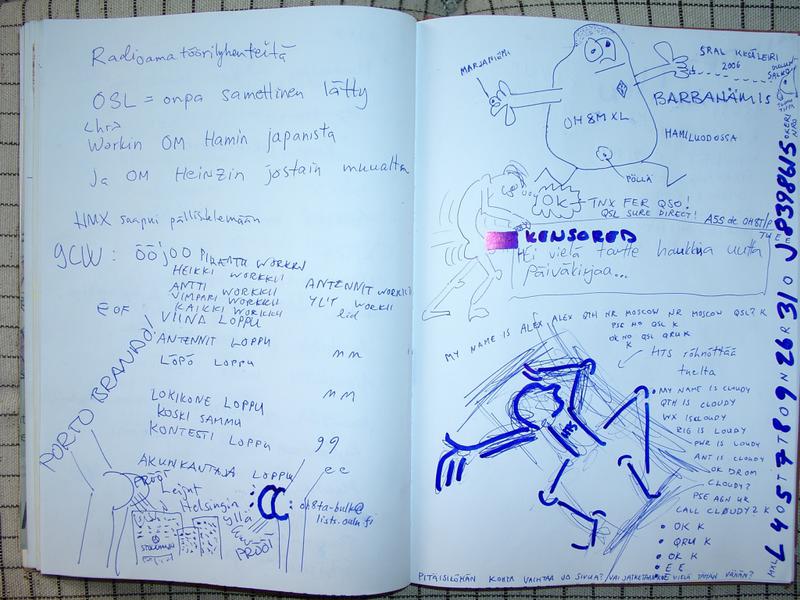 Radioamatöörilyhenteitä
QSL = onpa samettinen lätty
Workin OM Hamin japanista
ja OM Heinzin jostain muualta
HMX saapui pälliskelemään
9CW: ööjoo
HEIKKI WORKKII
ANTTI WORKKII
VIMPARI WORKKII
KAIKKI WORKKII
ANTENNIT WORKKII
YL'T WORKII
lid
EOF
VIINA LOPPU
ANTENNIT LOPPU
LÖPÖ LOPPU
MM
LOKIKONE LOPPU
MM
KOSKI SAMMU
KONTESTI LOPPU
99
AKUNKANTAJA LOPPU
ee
PORTO BRANDO!
PRÖÖT
Leijut
Helsingin
yllä
PRÖÖT
oh8ta-bulk@
lists.oulu.fi
MARJANIEMI
SRAL KESÄLEIRI
2006
BARBANÄMIS
OH8MXL
HAMILUODOSSA
PÖLLÄ
OK
TNX FER QSO!
QSL SURE DIRECT!
A5S de OH8T/P
TU E E
KENSORED
Ei vielä tartte hankkia uutta
päiväkirjaa...
MY NAME IS ALEX ALEX QTH NR MOSCOW NR MOSCOW QSL? K
PSE NO QSL K
OK NO QSL QRUK K
K
HTS röhnöttää
tuolta
HTS
MY NAME IS CLOUDY
QTH IS CLOUDY
WX IS CLOUDY
RIG IS LOUDY
PWR IS LOUDY
ANT IS CLOUDY
OK DR OM
CLOUDY?
PSE AGN UR
CALL CLOUDY? K
OK K
QRU K
OK K
E E
L405T7T809N26R31OJ8398615
PITÄISIKÖHÄN KOHTA VAIHTAA JO SIVUA? VAI JATKETAANKO VIELÄ TÄHÄN VÄHÄN?